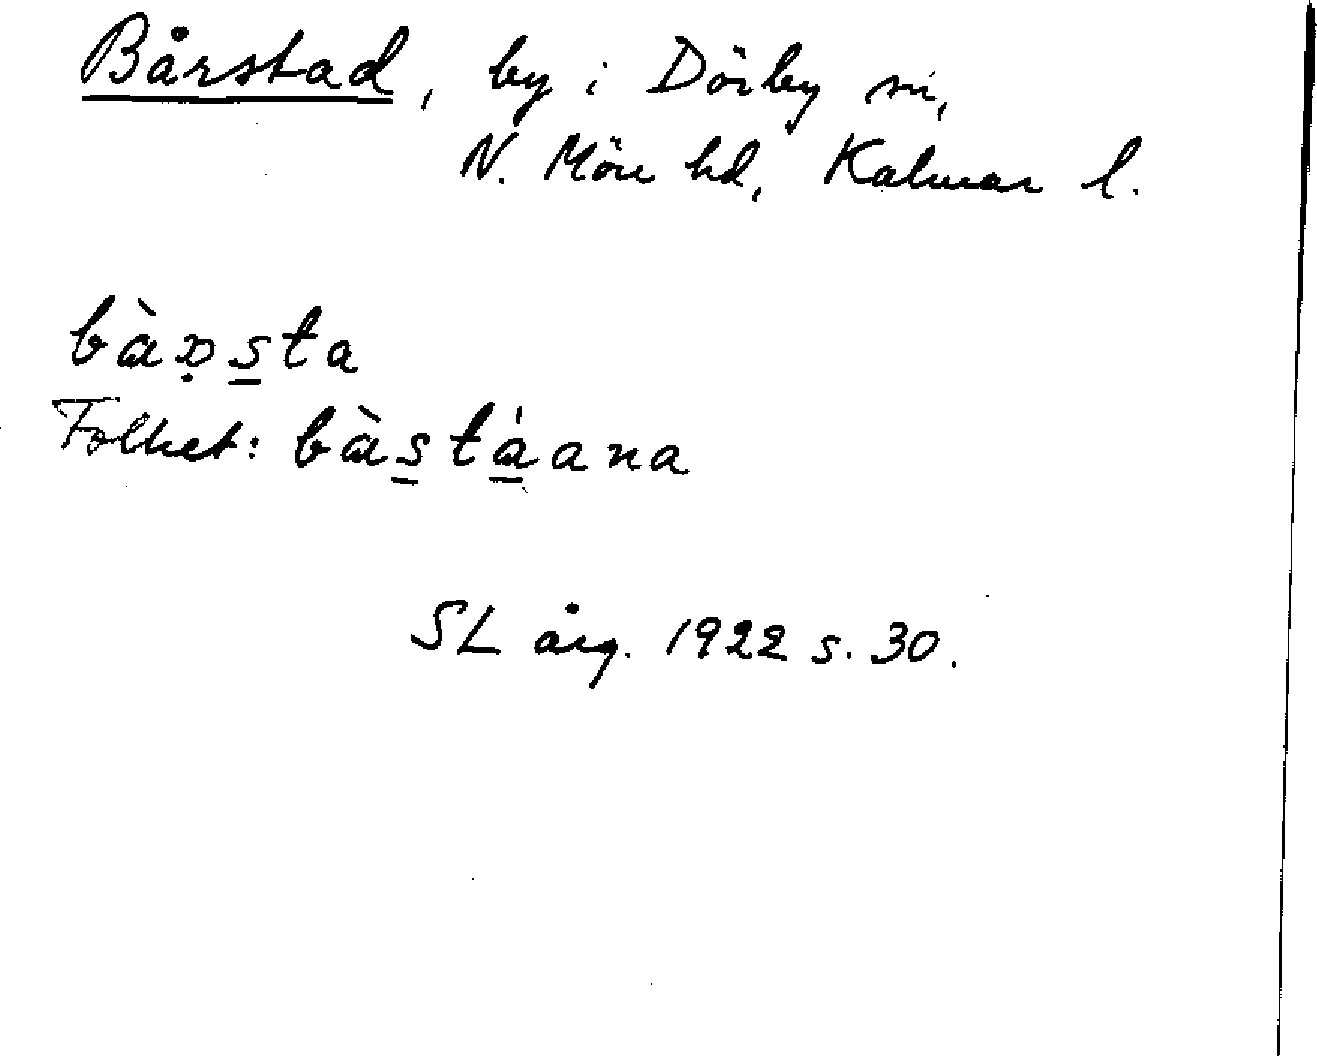 Bårstad, by i Dörby sn,
N. Möre hd, Kalmar l.
Folket:
SL årg. 1922 s. 30.